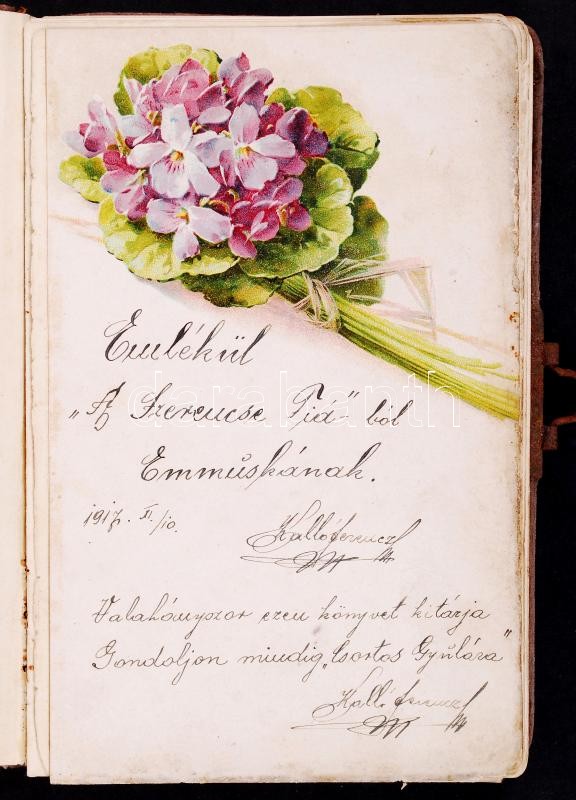 Emlékül
„A Szerencse Fiá" ból
Emmuskának.
1917. XI/10.
Kalló Ferencz
Valahányszor ezen könyvet kitárja
Gondoljon mindig „Csortos Gyulára"
Kalló Ferencz
darabanth